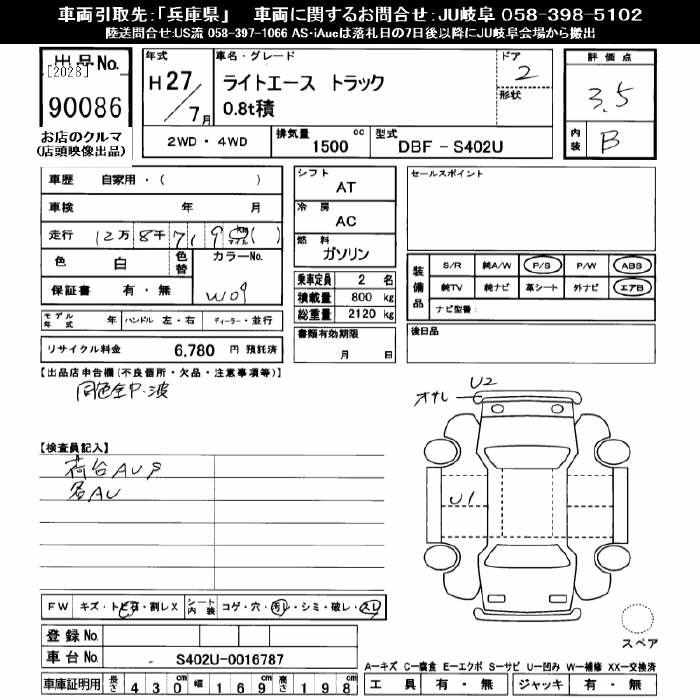 車両引取先:「兵庫県」 車両に関するお問合せ:JU岐阜 058-398-5102
陸送問合せ:US流 058-397-1066 AS-iAucは落札日の7日後以降にJU岐阜会場から搬出
出品No.
[2028]
90086
お店のクルマ
(店頭映像出品)
年式
H27/7月
車名・グレード
ライトエース トラック
0.8t積
ドア
2
形状
評価点
3.5
内装
B
2WD・4WD
排気量
1500 cc
型式
DBF - S402U
車歴 自家用・( )
車検 年 月
走行 12万 8千 7 1 9 km マイル ( )
色 白 色替 カラーNo.
W09
保証書 有・無
モデル年式 年 ハンドル 左・右 ディーラー・並行
リサイクル料金 6,780 円 預託済
シフト
AT
冷房
AC
燃料
ガソリン
乗車定員 2 名
積載量 800 kg
総重量 2120 kg
書類有効期限
月 日
セールスポイント
装備品
S/R 純A/W P/S P/W ABS
純TV 純ナビ 革シート 外ナビ エアB
ナビ型番:
後日品
【出品店申告欄(不良個所・欠品・注意事項等)】
【検査員記入】
荷台AU
各AU
オサレ
U2
U1
FW キズ・トビ石・割レX シート内装 コゲ・穴・汚レ・シミ・破レ・スレ
登録No.
車台No. S402U-0016787
車庫証明用 長さ 430 cm 幅 169 cm 高さ 198 cm
スペア
A―キズ C―腐食 E―エクボ S―サビ U―凹み W―補修 XX―交換済
工具 有・無 ジャッキ 有・無